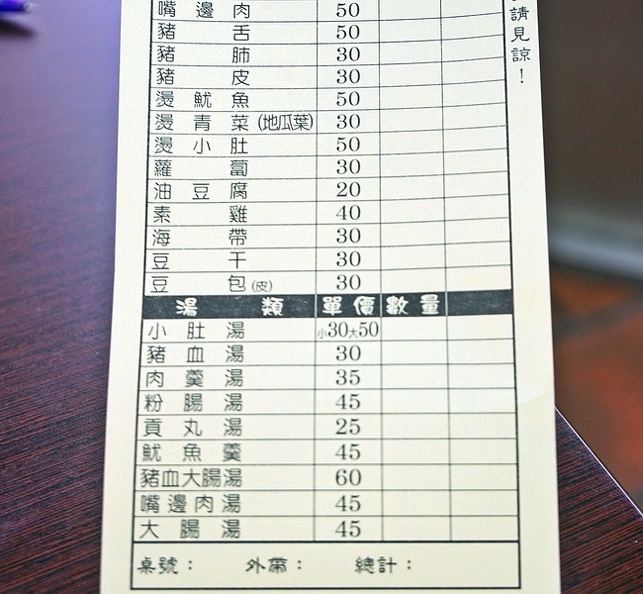 嘴邊肉 50
豬舌 50
豬肺 30
豬皮 30
燙魷魚 50
燙青菜(地瓜葉) 30
燙小肚 50
蘿蔔 30
油豆腐 20
素雞 40
海帶 30
豆干 30
豆包(皮) 30
湯類 單價 數量
小肚湯 小30大50
豬血湯 30
肉羹湯 35
粉腸湯 45
貢丸湯 25
魷魚羹 45
豬血大腸湯 60
嘴邊肉湯 45
大腸湯 45
桌號： 外帶： 總計：
請見諒！